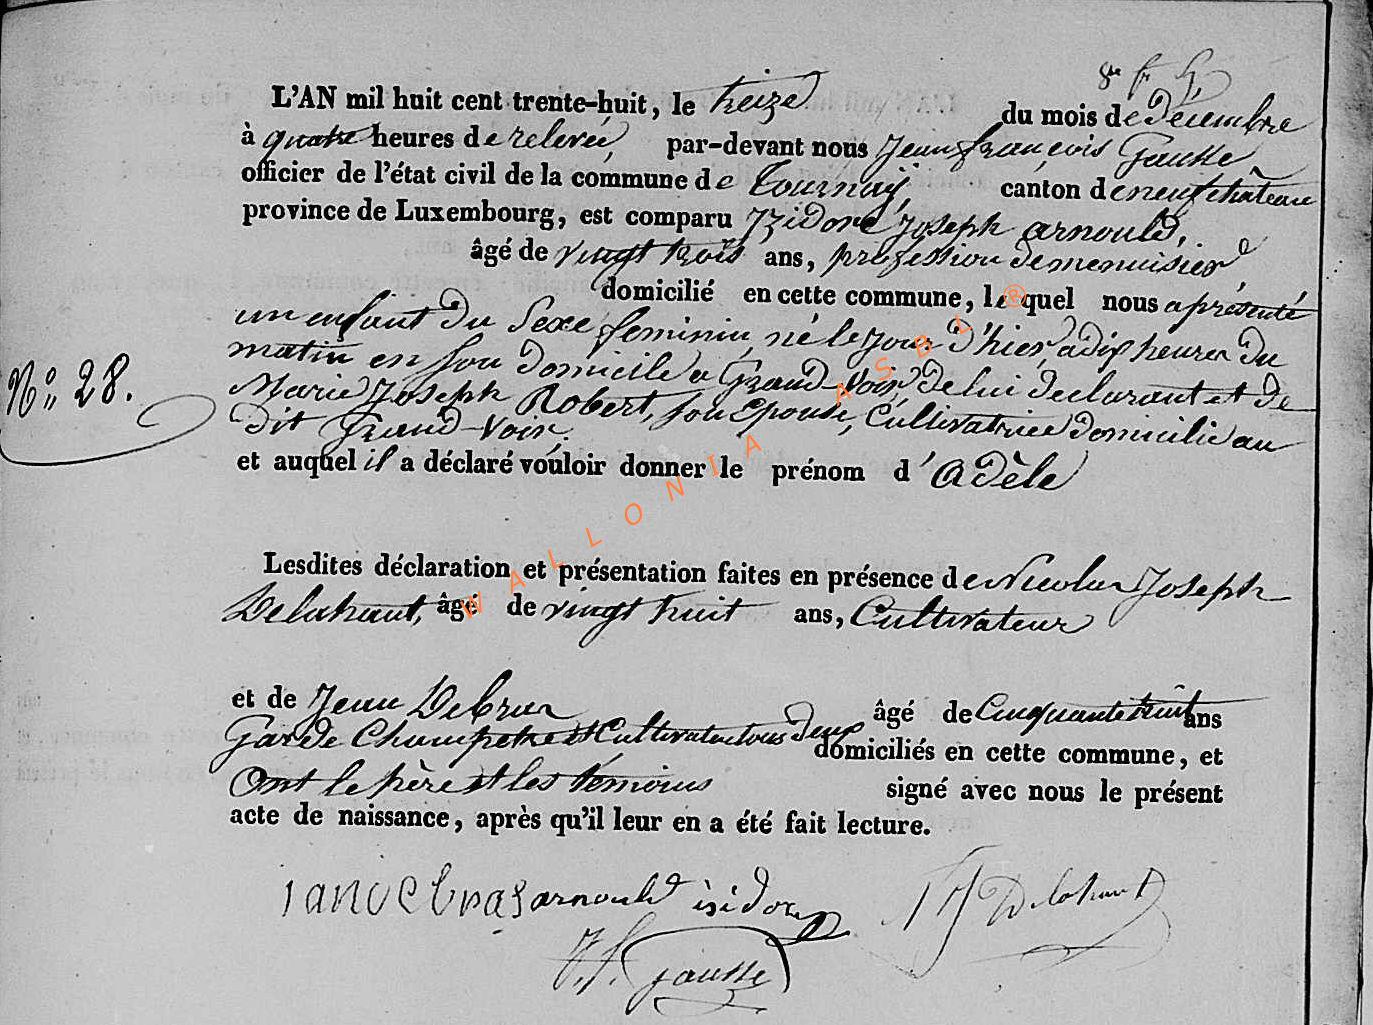 L'AN mil huit cent trente-huit, le treize du mois de Décembre
à quatre heures de relevée, par-devant nous Jean françois Gausse
officier de l'état civil de la commune de Tournay, canton de neufchâteau
province de Luxembourg, est comparu Izidore Joseph arnould,
âgé de vingt trois ans, profession de menuisier
domicilié en cette commune, lequel nous a présenté
un enfant du Sexe feminin, né le jour d'hier, a dix heures du
matin en son domicile a Grand-Voir, de lui declarant et de
Marie Joseph Robert, son Epouse, Cultivatrice domicilié au
dit Grand-Voir.
N° 28.
et auquel il a déclaré vouloir donner le prénom d'Adèle
Lesdites déclaration et présentation faites en présence de Nicolas Joseph
Delahaut, âgé de vingt huit ans, Cultivateur
et de Jean Debras âgé de Cinquante huit ans
Garde Champetre et Cultivateur tous deux domiciliés en cette commune, et
Ont le père et les témoins signé avec nous le présent
acte de naissance, après qu'il leur en a été fait lecture.
Jan Debras arnould isidor NJ Delahaut
J.f. Gausse
WALLONIA ASBL ®